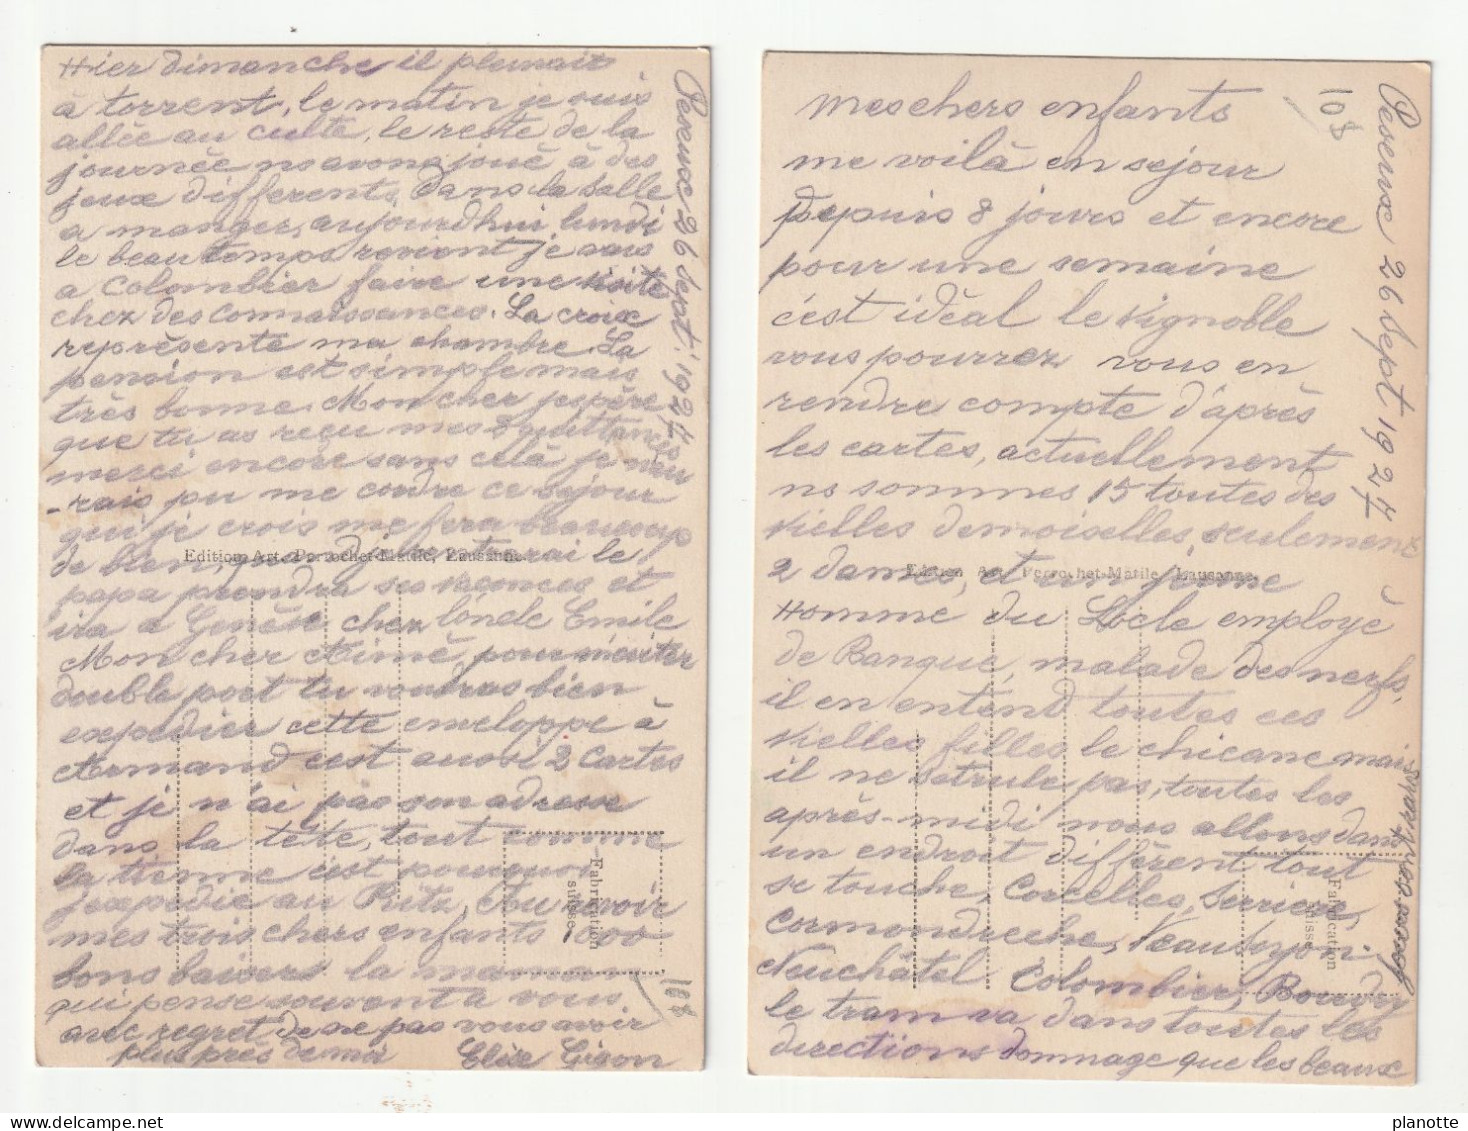 Hier dimanche il pleuvait
à torrent, le matin je suis
allée au culte, le reste de la
journée ns avons joué à des
jeux differents, dans la salle
a manger, aujourd'hui lundi
le beau temps revient je vais
a Colombier faire une visite
chez des connaissances. La croix
représente ma chambre La
pension est simple mais
très bonne. Mon cher j'espère
que tu as reçu mes 8 quittances
merci encore sans celà je n'au
-rais pu me
ce sejour
qui je crois me fera beaucoup
de bien, le
papa prendra ses vacances et
ira a Genève chez loncle Emile
Mon cher Aimé, pour m'éviter
double port tu voudras bien
expedier cette enveloppe à
Armand c'est aussi 2 Cartes
et je n'ai pas son adresse
dans la tête, tout comme
la tienne c'est pourquoi
j'expédie au Ritz, Au revoir
mes trois chers enfants 000
bons baisers la maman
qui pense souvent à vous
avec regret de ne pas vous avoir
plus près de moi Elise Gigon
Peseux 26 Sept. 1927
Edition Art. Perrochet-Matile, Lausanne
Fabrication
suisse
108
Mes chers enfants
me voilà en sejour
depuis 8 jours et encore
pour une semaine
c'est idéal le Vignoble
vous pourrez vous en
rendre compte d'après
les cartes, actuellement
ns sommes 15 toutes des
vielles demoiselles, seulement
2 dames, et un jeune
Homme du Locle employé
de Banque, malade des nerfs,
il en entend toutes ces
vielles filles le chicane mais
il ne pas, toutes les
après-midi nous allons dans
un endroit différent tout
se touche, Corcelles, Serrière,
Cormondreche, Veauseyon.
Neuchâtel Colombier, Boudry
le tram va dans toutes les
directions dommage que les beaux
108
Peseux 26 Sept 1927
Edition Art. Perrochet-Matile, Lausanne
Fabrication
suisse
planotte